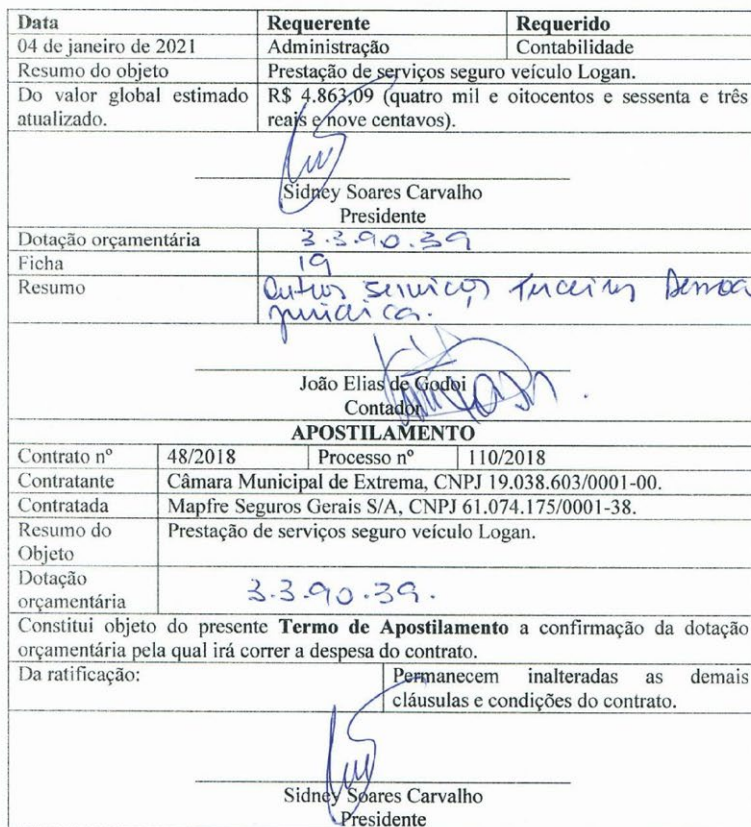 Data Requerente Requerido
04 de janeiro de 2021 Administração Contabilidade
Resumo do objeto Prestação de serviços seguro veículo Logan.
Do valor global estimado R$ 4.863,09 (quatro mil e oitocentos e sessenta e três
atualizado. reais e nove centavos).
Sidney Soares Carvalho
Presidente
Dotação orçamentária 3.3.90.39
Ficha 19
Resumo Outros serviços Terceiros Pessoa
jurídica.
João Elias de Godoi
Contador
APOSTILAMENTO
Contrato nº 48/2018 Processo nº 110/2018
Contratante Câmara Municipal de Extrema, CNPJ 19.038.603/0001-00.
Contratada Mapfre Seguros Gerais S/A, CNPJ 61.074.175/0001-38.
Resumo do Prestação de serviços seguro veículo Logan.
Objeto
Dotação
orçamentária 3.3.90.39.
Constitui objeto do presente Termo de Apostilamento a confirmação da dotação
orçamentária pela qual irá correr a despesa do contrato.
Da ratificação: Permanecem inalteradas as demais
cláusulas e condições do contrato.
Sidney Soares Carvalho
Presidente